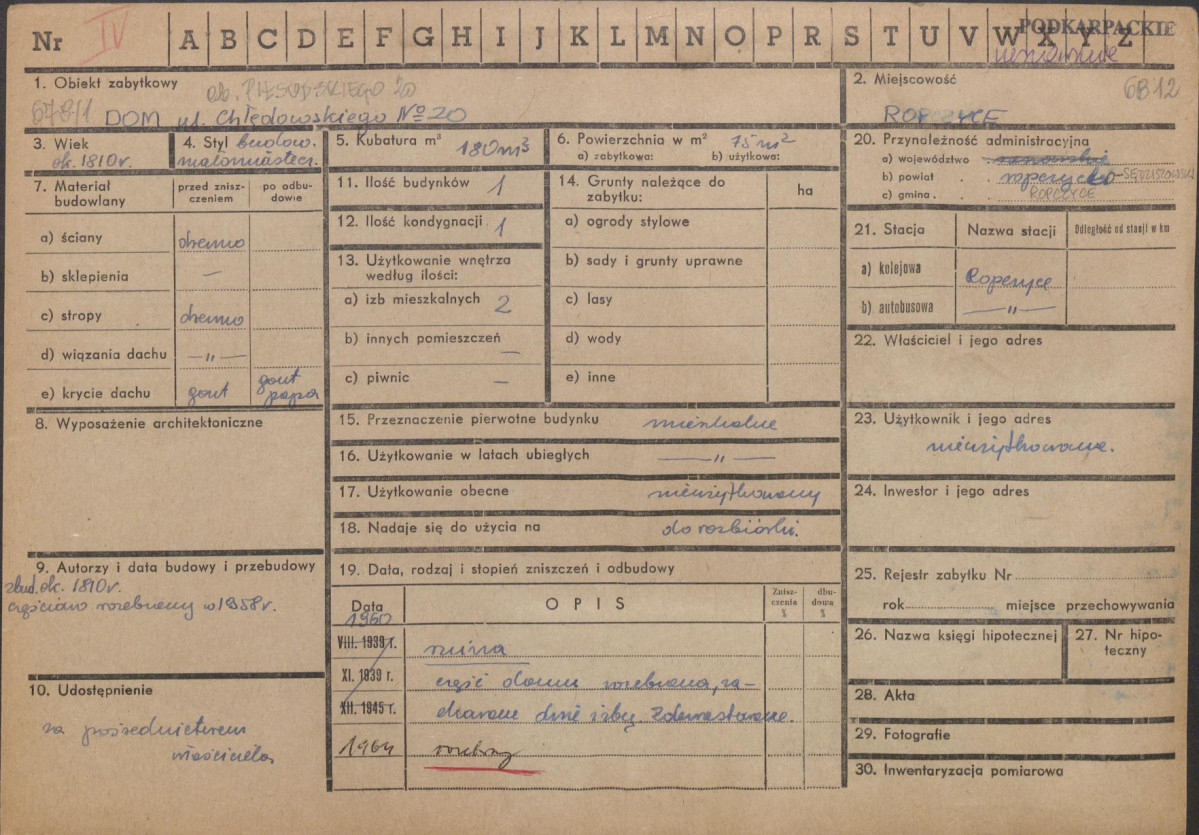 Nr IV A B C D E F G H I J K L M N O P R S T U V W X Y Z PODKARPACKIE
1. Obiekt zabytkowy
ob. PIŁSUDSKIEGO 20
DOM ul. Chłędowskiego № 20
2. Miejscowość 6812
ROPCZYCE
3. Wiek
ok. 1810 r.
4. Styl budown.
małomiastecz.
5. Kubatura m³ 180 m³
6. Powierzchnia w m² 75 m²
a) zabytkowa: b) użytkowa:
20. Przynależność administracyjna
a) województwo rzeszowskie
b) powiat ropczycko-SĘDZISZOWSKI
c) gmina ROPCZYCE
7. Materiał budowlany
przed zniszczeniem
po odbudowie
a) ściany drewno
b) sklepienia —
c) stropy drewno
d) wiązania dachu —"—
e) krycie dachu gont gont papa
11. Ilość budynków 1
12. Ilość kondygnacji 1
13. Użytkowanie wnętrza
według ilości:
a) izb mieszkalnych 2
b) innych pomieszczeń —
c) piwnic —
14. Grunty należące do
zabytku:
ha
a) ogrody stylowe
b) sady i grunty uprawne
c) lasy
d) wody
e) inne
21. Stacja Nazwa stacji Odległość od stacji w km
a) kolejowa Ropczyce
b) autobusowa —"—
22. Właściciel i jego adres
8. Wyposażenie architektoniczne
15. Przeznaczenie pierwotne budynku mieszkalne
16. Użytkowanie w latach ubiegłych —"—
17. Użytkowanie obecne nieużytkowany
18. Nadaje się do użycia na do rozbiórki.
23. Użytkownik i jego adres
nieużytkowane.
24. Inwestor i jego adres
9. Autorzy i data budowy i przebudowy
zbud. ok. 1810 r.
częściowo rozebrany w 1958 r.
19. Data, rodzaj i stopień zniszczeń i odbudowy
Data OPIS Zniszczenia % dbudowa %
1960
VIII. 1939 r. ruina
XI. 1939 r. część domu rozebrana, za-
XII. 1945 r. chowane dwie izby. Zdewastowane.
1964 rozebrany
25. Rejestr zabytku Nr
rok miejsce przechowywania
26. Nazwa księgi hipotecznej
27. Nr hipoteczny
10. Udostępnienie
za pośrednictwem
właściciela
28. Akta
29. Fotografie
30. Inwentaryzacja pomiarowa